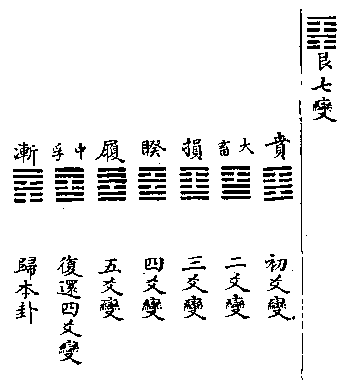 艮七變
賁 初爻變
大畜 二爻變
損 三爻變
睽 四爻變
履 五爻變
中孚 復還四爻變
漸 歸本卦